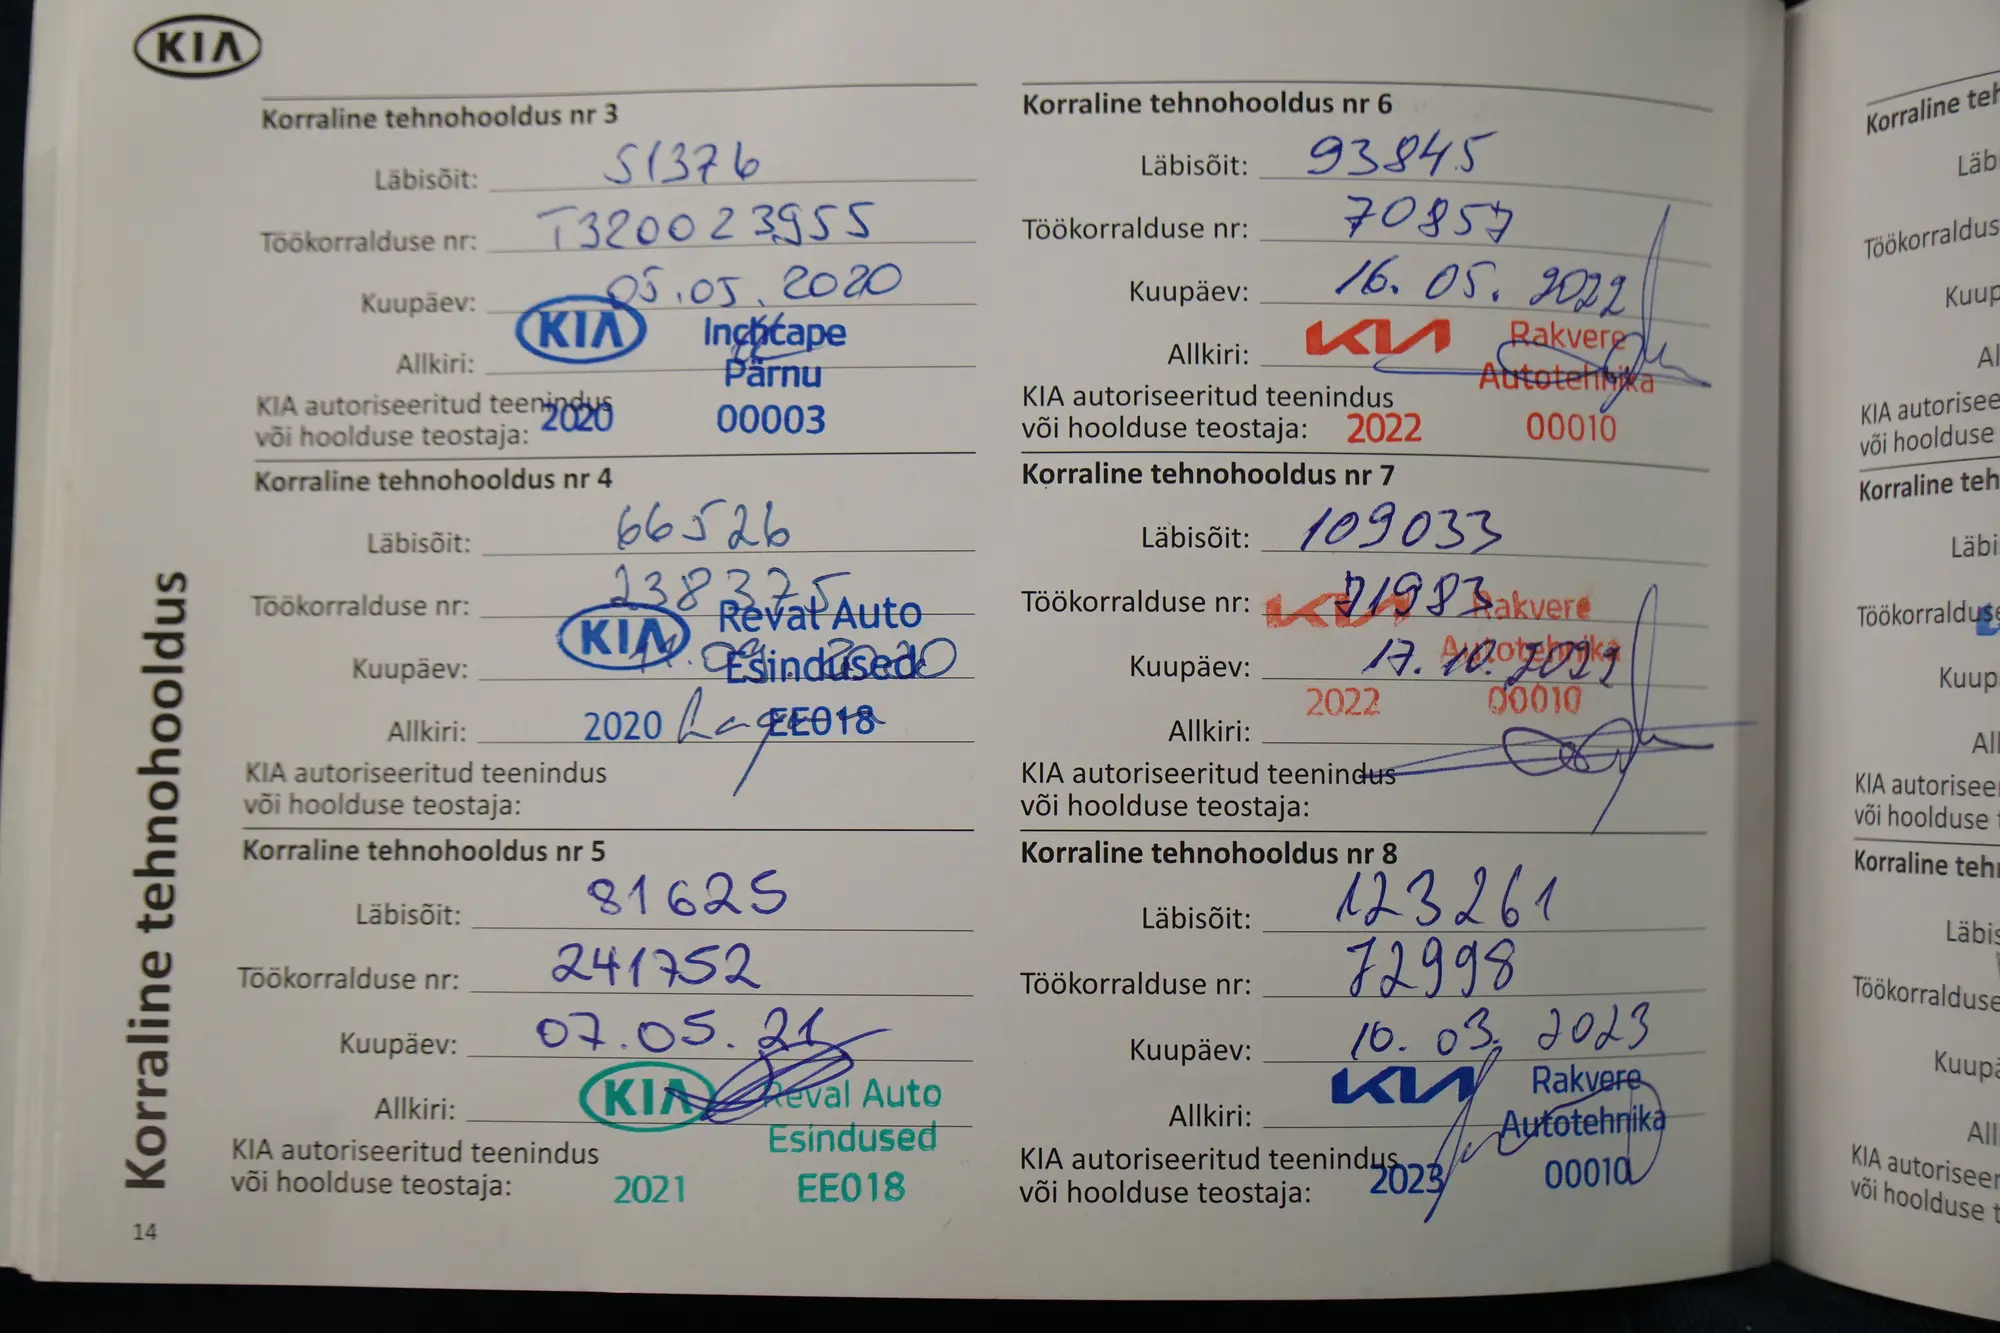 KIA
Korraline tehnohooldus nr 3
Läbisõit: 51376
Töökorralduse nr: T320023955
Kuupäev: 05.05.2020
KIA Inchcape
Allkiri: Pärnu
KIA autoriseeritud teenindus
või hoolduse teostaja: 2020 00003
Korraline tehnohooldus nr 4
Läbisõit: 66526
Töökorralduse nr: 238375
KIA Reval Auto
Kuupäev: 11.09.2020 Esindused
Allkiri: 2020 EE018
KIA autoriseeritud teenindus
või hoolduse teostaja:
Korraline tehnohooldus nr 5
Läbisõit: 81625
Töökorralduse nr: 241752
Kuupäev: 07.05.21
Allkiri: KIA Reval Auto
Esindused
KIA autoriseeritud teenindus
või hoolduse teostaja: 2021 EE018
Korraline tehnohooldus nr 6
Läbisõit: 93845
Töökorralduse nr: 70857
Kuupäev: 16.05.2022
KIA Rakvere
Allkiri: Autotehnika
KIA autoriseeritud teenindus
või hoolduse teostaja: 2022 00010
Korraline tehnohooldus nr 7
Läbisõit: 109033
Töökorralduse nr: 71983
KIA Rakvere
Autotehnika
Kuupäev: 17.10.2022
2022 00010
Allkiri:
KIA autoriseeritud teenindus
või hoolduse teostaja:
Korraline tehnohooldus nr 8
Läbisõit: 123261
Töökorralduse nr: 72998
Kuupäev: 10.03.2023
KIA Rakvere
Allkiri: Autotehnika
KIA autoriseeritud teenindus
või hoolduse teostaja: 2023 00010
Korraline tehnohooldus
14
Korraline teh
Läb
Töökorraldus
Kuup
Al
KIA autorisee
või hoolduse
Korraline teh
Läbi
Töökorralduse
Kuup
All
KIA autorisee
või hoolduse
Korraline teh
Läbis
Töökorralduse
Kuupä
All
KIA autoriseer
või hoolduse t